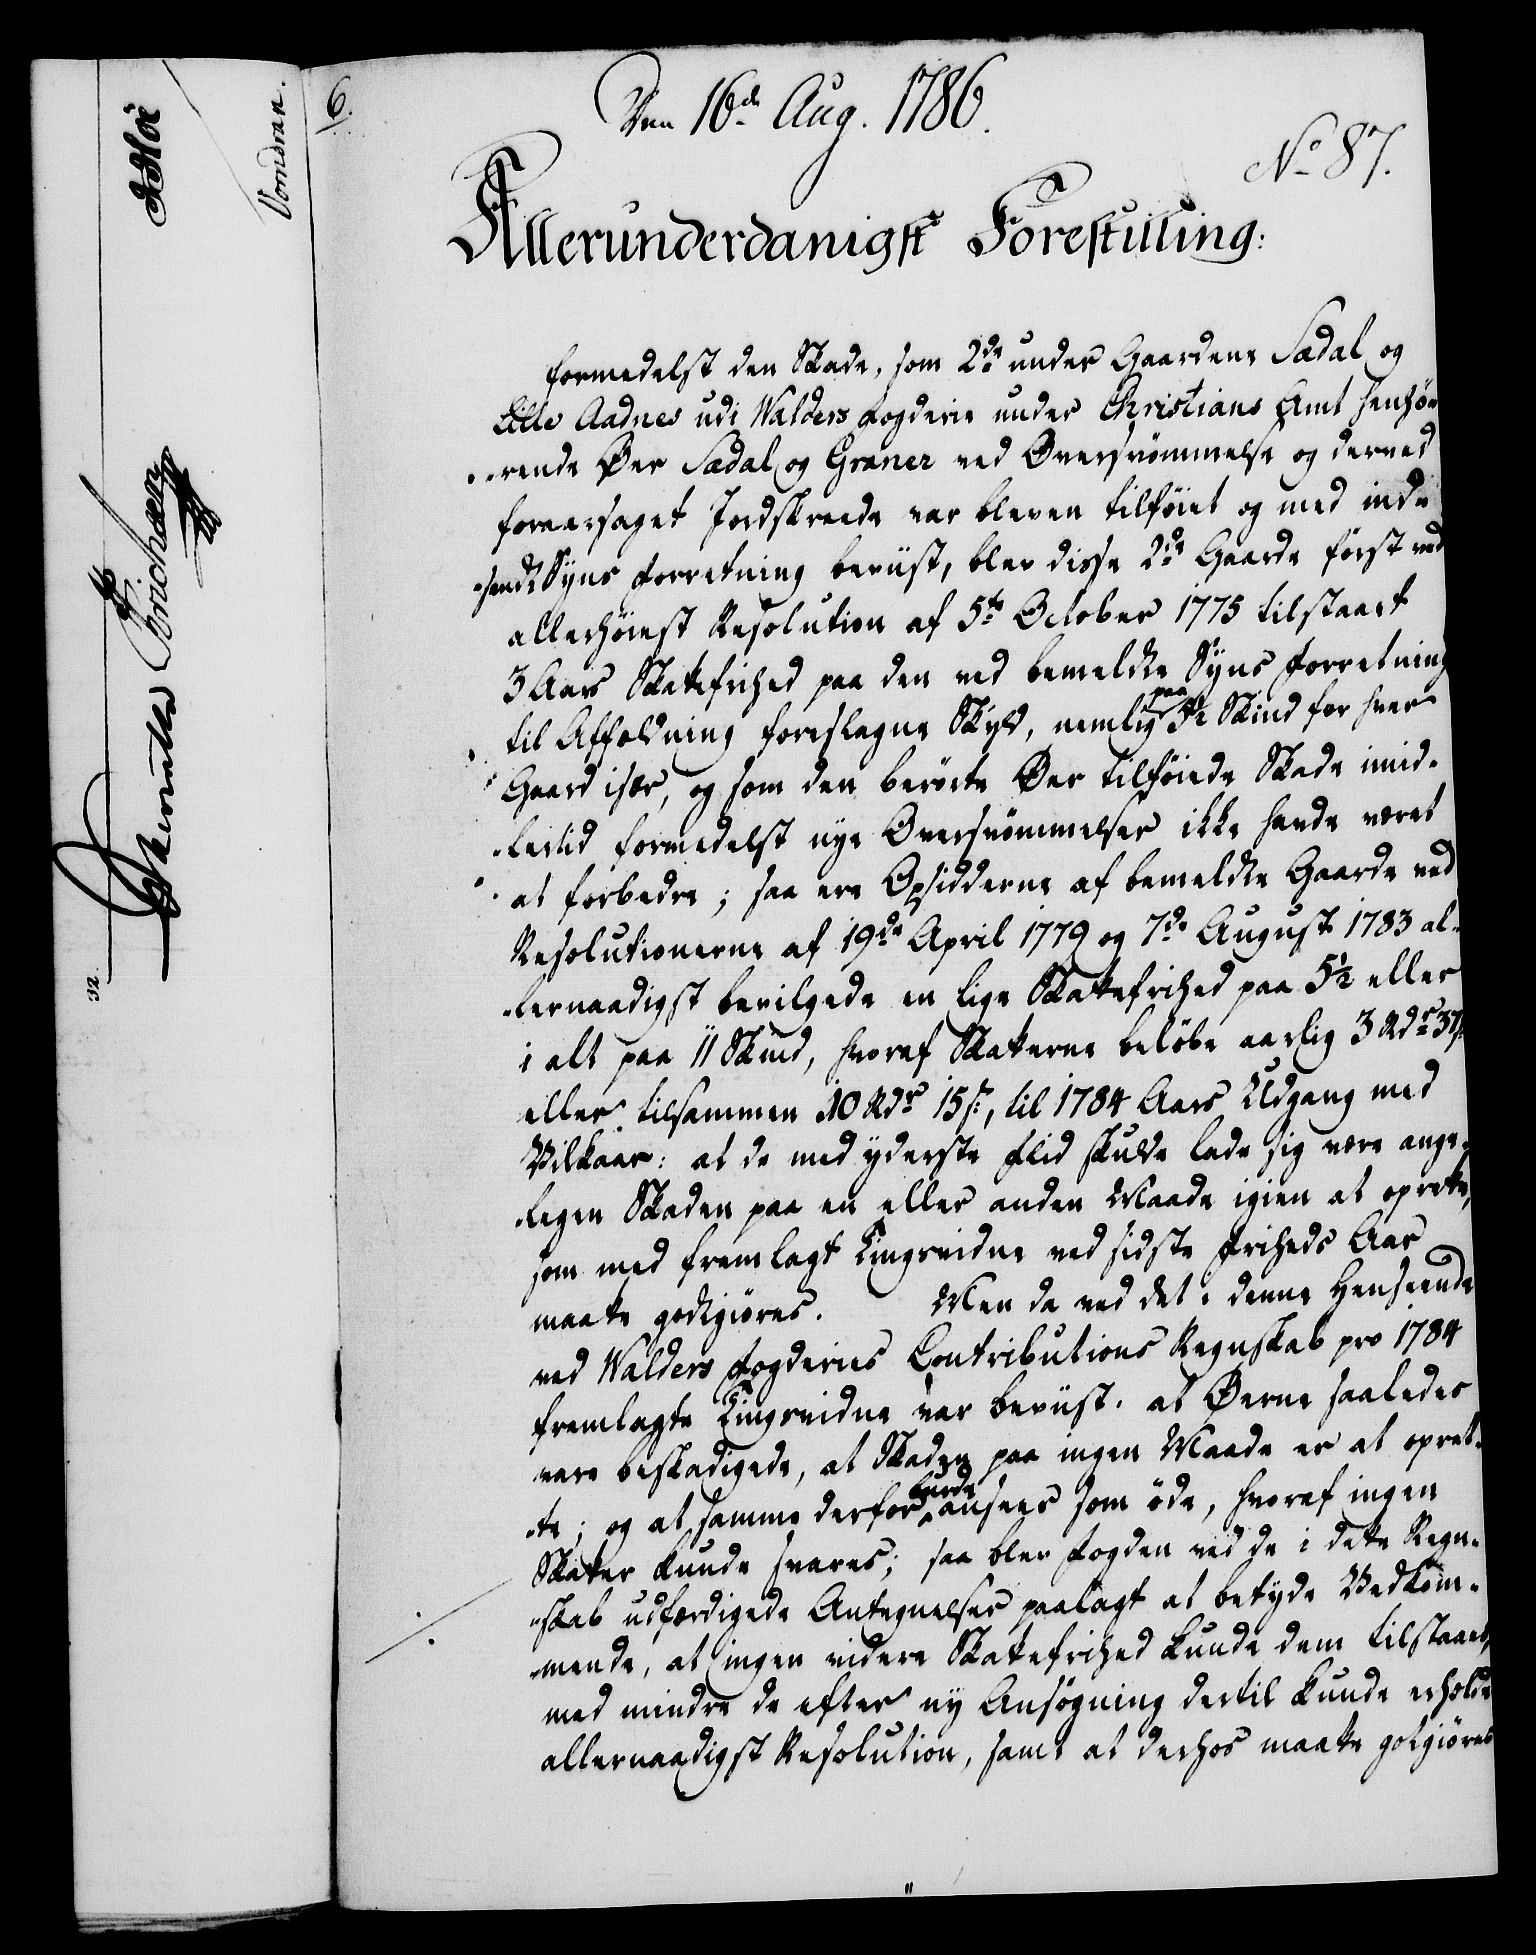 Den 16de Aug. 1786.
No 87.
6.
Allerunderdanigst Forestilling:
Formedelst den Skade, som 2de under Gaardene Sædal og
Lille Aadnes udi Walders Fogderie under Christians Amt henhø-
rende Øer Sædal og Graner ved Oversvømmelse og derved
foraarsaget Jordskreede var bleven tilføiet og med ind-
sendt Syns Forretning beviist, blev disse 2de Gaarde først ved
allerhøiest Resolution af 5te October 1775 tilstaaet
3 Aars Skattefrihed paa den ved bemeldte Syns Forretning
til Affældning foreslagne Skyld, nemlig paa 5½ Skind for hver
Gaard især, og som den berørte Øer tilføiede Skade imid-
lertid formedelst nye Oversvømmelser ikke havde været
at forbedre; saa ere Opsidderne af bemeldte Gaarde ved
Resolutionerne af 19de April 1779 og 7de August 1783 al-
lernaadigst bevilgede en lige Skattefrihed paa 5½ eller
i alt paa 11 Skind, hvoraf Skatterne beløbe aarlig 3 Rdr 37 s
eller tilsammen 10 Rdr 15 s, til 1784 Aars Udgang med
Vilkaar: at de med yderste Flid skulde lade sig være ange-
legen Skaden paa en eller anden Maade igien at oprette,
som med fremlagt Tingsvidne ved sidste Friheds Aar
maatte godtgiøres. Men da ved det i denne Henseende
ved Walders Fogderies Contributions Regnskab pro 1784
fremlagte Tingsvidne var beviist. at Øerne saaledes
vare beskadigede, at Skaden paa ingen Maade er at opret-
te; og at samme derfor burde ansees som øde, hvoraf ingen
Skatter kunde svares; saa blev Fogden ved de i dette Regn-
skab udfærdigede Antegnelser paalagt at betyde Vedkom-
mende, at ingen videre Skattefrihed kunde dem tilstaaes,
med mindre de efter ny Ansøgning dertil kunde erholde
allernaadigst Resolution, samt at derhos maatte gotgiøres
Vondran.
32.